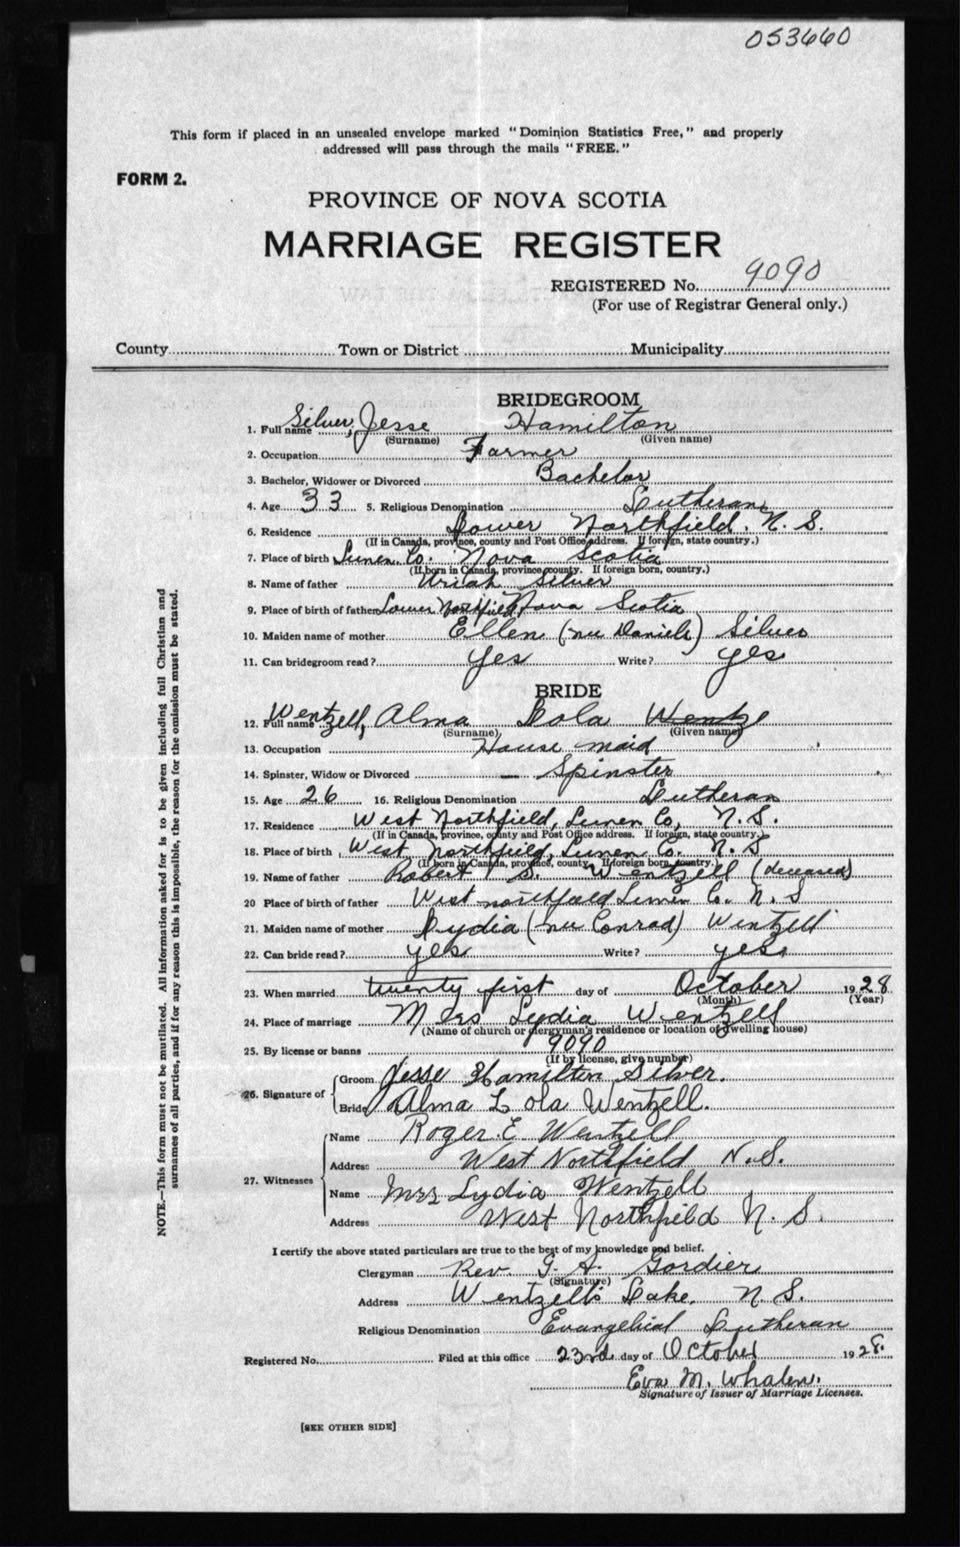 053660
This form if placed in an unsealed envelope marked "Dominion Statistics Free," and properly
addressed will pass through the mails "FREE."
FORM 2.
PROVINCE OF NOVA SCOTIA
MARRIAGE REGISTER
REGISTERED No. 9090
(For use of Registrar General only.)
County Town or District Municipality
BRIDEGROOM
1. Full name Silver, Jesse Hamilton
(Surname) (Given name)
2. Occupation Farmer
3. Bachelor, Widower or Divorced Bachelor
4. Age 33 5. Religious Denomination Lutheran
6. Residence Lower Northfield, N. S.
(If in Canada, province, county and Post Office address. If foreign, state country.)
7. Place of birth Lunen. Co. Nova Scotia
(If born in Canada, province, county. If foreign born, country.)
8. Name of father Uriah Silver
9. Place of birth of father Lower Northfield Nova Scotia
10. Maiden name of mother Ellen (nee Daniels) Silver
11. Can bridegroom read? yes Write? yes
BRIDE
12. Full name Wentzell, Alma Lola Wentze
(Surname) (Given name)
13. Occupation House maid
14. Spinster, Widow or Divorced — Spinster
15. Age 26 16. Religious Denomination Lutheran
17. Residence West Northfield, Lunen Co, N. S.
(If in Canada, province, county and Post Office address. If foreign, state country.)
18. Place of birth West Northfield, Lunen Co. N. S
(If born in Canada, province, county. If foreign born, country.)
19. Name of father Robert S. Wentzell (deceased)
20 Place of birth of father West northfield Lunen Co. N. S
21. Maiden name of mother Lydia (nee Conrad) Wentzell
22. Can bride read? yes Write? yes
23. When married twenty first day of October 1928
(Month) (Year)
24. Place of marriage Mrs Lydia Wentzell
(Name of church or clergyman's residence or location of dwelling house)
25. By license or banns 9090
(If by license, give number)
26. Signature of Groom Jesse Hamilton Silver.
Bride Alma Lola Wentzell.
27. Witnesses Name Roger. E Wentzell
Address West Northfield N.S.
Name Mrs Lydia Wentzell
Address West Northfield N. S.
I certify the above stated particulars are true to the best of my knowledge and belief.
Clergyman Rev. G. A. Gordier
(Signature)
Address Wentzell's Lake, N. S.
Religious Denomination Evangelical Lutheran
Registered No. Filed at this office 23rd day of October 1928.
Eva M. Whalen.
Signature of Issuer of Marriage Licenses.
[SEE OTHER SIDE]
NOTE.—This form must not be mutilated. All information asked for is to be given including full Christian and
surnames of all parties, and if for any reason this is impossible, the reason for the omission must be stated.